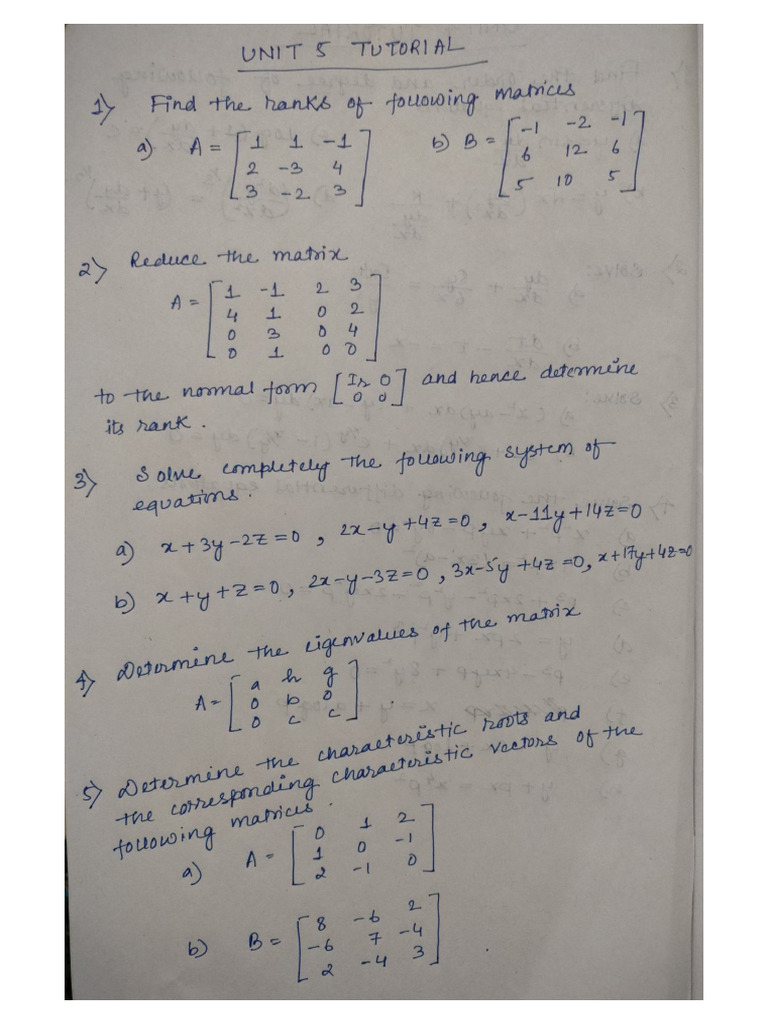 UNIT 5 TUTORIAL
1) Find the ranks of following matrices
a) A = [1 1 -1
2 -3 4
3 -2 3]
b) B = [-1 -2 -1
6 12 6
5 10 5]
2) Reduce the matrix
A = [1 -1 2 3
4 1 0 2
0 3 0 4
0 1 0 0]
to the normal form [Ir 0
0 0] and hence determine
its rank.
3) Solve completely the following system of
equations.
a) x+3y-2z=0, 2x-y+4z=0, x-11y+14z=0
b) x+y+z=0, 2x-y-3z=0, 3x-5y+4z=0, x+17y+4z=0
4) Determine the eigenvalues of the matrix
A = [a h g
0 b 0
0 c c]
5) Determine the characteristic roots and
the corresponding characteristic vectors of the
following matrices.
a) A = [0 1 2
1 0 -1
2 -1 0]
b) B = [8 -6 2
-6 7 -4
2 -4 3]